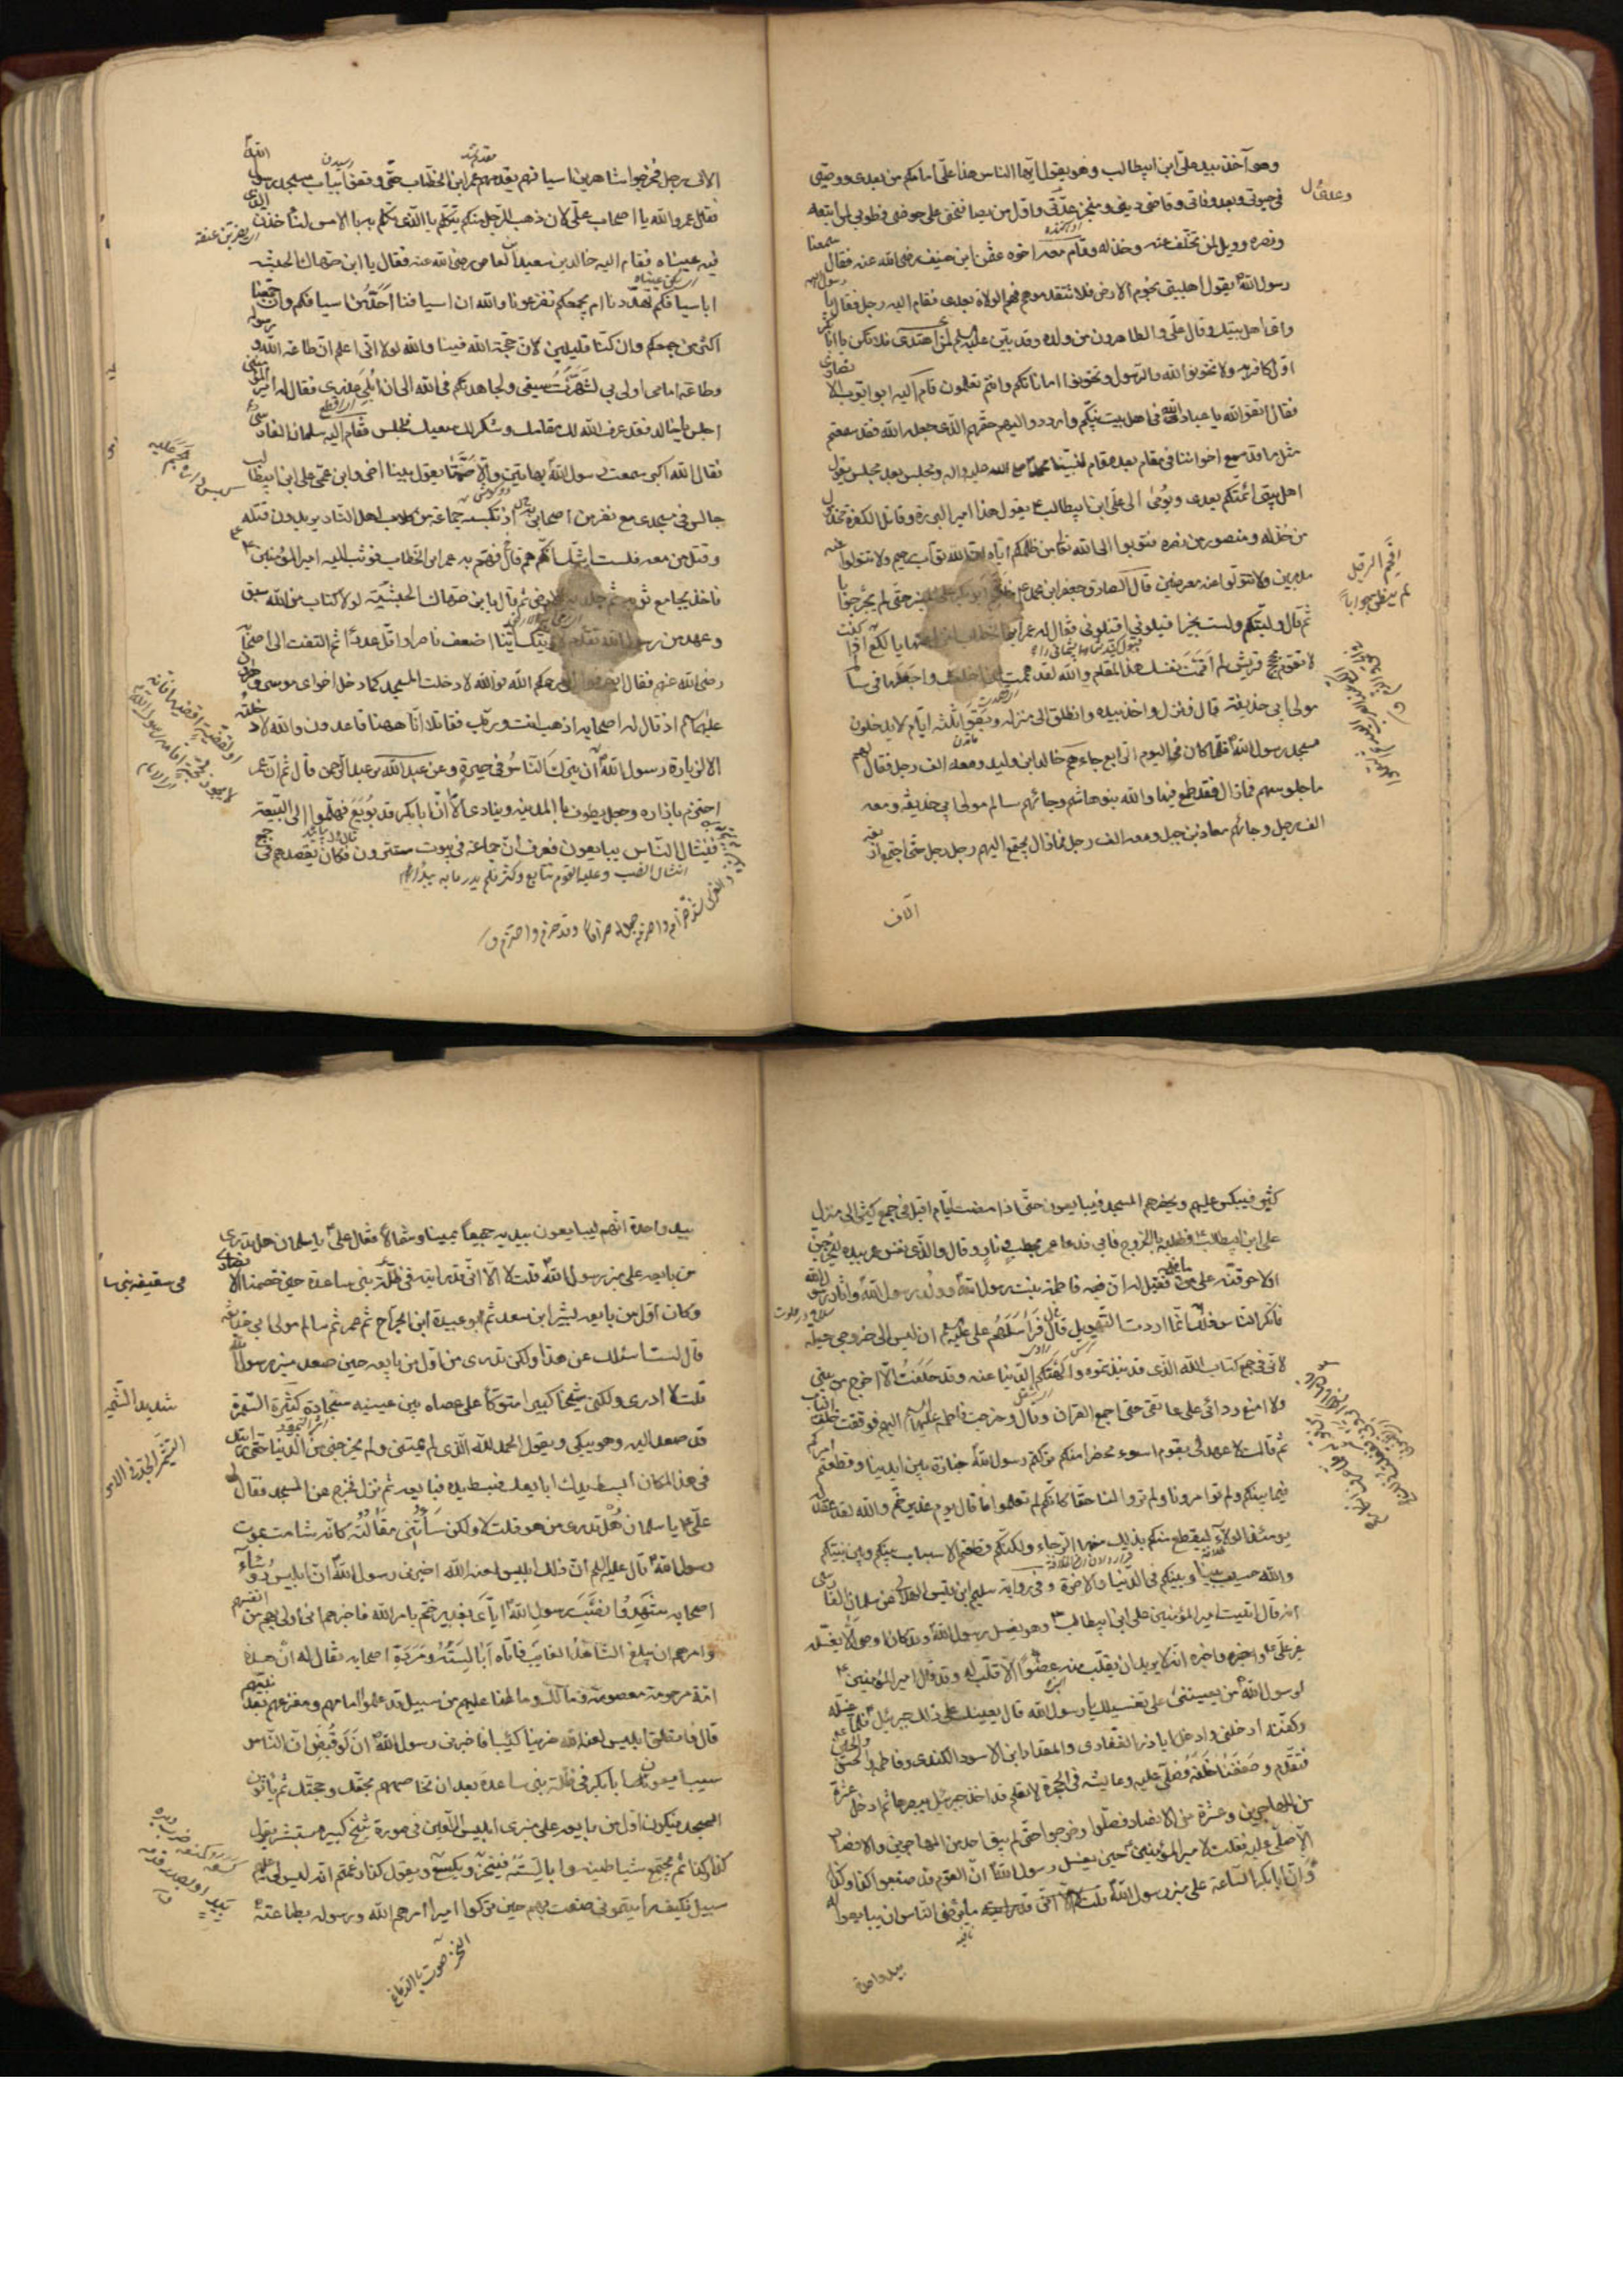 وهو آخذ بيد علي ابن ابيطالب وهو يقول ايها الناس هذا علي امامكم من بعدى ووصيى
فى حيوتى وبعد وفاتى وقاضى دينى ومنجز عدتى واول من يصافحنى على حوضى فطوبى لمن اتبعه
ونصره وويل لمن تخلف عنه وخذله وقام معه اخوه عثمن ابن حنيف رضى الله عنه فقال سمعنا
رسول الله يقول اهلبيتى نجوم الارض فلا تتقدموهم فهم الولاة بعدى فقام اليه رجل فقال يا رسول الله
واى اهل بيتك فقال علي والطاهرون من ولده وقد بين عليه السلم لمن اهتدى فلا تكن يا ابا بكر
اول كافر به ولا تخونوا الله والرسول وتخونوا اماناتكم وانتم تعلمون ثم قام اليه ابو ايوب الانصارى
فقال اتقوا الله يا عباد الله فى اهل بيت نبيكم وارددوا اليهم حقهم الذى جعله الله فقد سمعتم
مثل ما قد سمع اخواننا فى مقام بعد مقام لنبينا محمد صلى الله عليه واله ومجلس بعد مجلس يقول
اهل بيتى ائمتكم بعدى ويومى الى على ابن ابيطالب يقول هذا امير البررة وقاتل الكفرة مخذول
من خذله ومنصور من نصره فتوبوا الى الله من ظلمكم اياه ان الله تواب رحيم ولا تتولوا عنه
مدبرين ولا تتولوا عنه معرضين قال الصادق جعفر ابن محمد فافحم ابو بكر على المنبر حتى لم يحر جوابا
ثم قال وليتكم ولست بخيركم اقيلونى اقيلونى فقال له عمر ابن الخطاب انزل عنها يا لكع اذا كنت
لا تقوم بحجج قريش لم اقمت نفسك هذا المقام والله لقد هممت ان اخلعك واجعلها فى سالم
مولى ابى حذيفة قال فنزل واخذ بيده وانطلق الى منزله وبقوا ثلثة ايام لا يدخلون
مسجد رسول الله فلما كان فى اليوم الرابع جاءهم خالد ابن وليد ومعه الف رجل فقال لهم
ما جلوسهم فما زال فقد طمع فيها والله بنو هاشم وجائهم سالم مولى ابى حذيفة ومعه
الف رجل وجائهم معاذ بن جبل ومعه الف رجل فما زال يجتمع اليهم رجل رجل حتى اجتمع اربعة
الاف
افحم الرجل
لم يطق جوابا
الاف رجل فخرجوا شاهرين اسيافهم يقدمهم عمر ابن الخطاب حتى وقفوا بباب مسجد رسول الله
فقال عمر والله يا اصحاب على لان ذهب الرجل منكم يتكلم بالذى تكلم به بالامس لناخذن الذى
فيه عيناه فقام اليه خالد بن سعيد ابن العاص رضى الله عنه فقال يا ابن صهاك الحبشية
اباسيافكم تهددنا ام بجمعكم تفزعونا والله ان اسيافنا احد من اسيافكم وان جمعنا
اكثر من جمعكم وان كنا قليلين لان حجة الله فينا والله لولا انى اعلم ان طاعة الله ورسوله
وطاعة امامى اولى بى لشهرت سيفى ولجاهدتكم فى الله الى ان ابلى عذرى فقال له امير المؤمنين
اجلس يا خالد فقد عرف الله لك مقامك وشكر لك سعيك فجلس فقام اليه سلمان الفارسى
فقال الله اكبر سمعت رسول الله بهاتين والا صمتا يقول بينا اخى وابن عمى على ابن ابيطالب
جالس فى مسجدى مع نفر من اصحابى اذ تكبسه جماعة من كلاب اهل النار يريدون قتله
وقتل من معه فلست اشك انكم هم قال فهم به عمر ابن الخطاب فوثب اليه امير المؤمنين
فاخذ بمجامع ثوبه ثم جلد به الارض ثم قال يا بن صهاك الحبشية لولا كتاب من الله سبق
وعهد من رسول الله تقدم لاريتك اينا اضعف ناصرا واقل عددا ثم التفت الى اصحابه
رضى الله عنهم فقال انصرفوا رحمكم الله فوالله لا دخلت المسجد كما دخل اخواى موسى وهرون
عليهما السلام اذ قال له اصحابه اذهب انت وربك فقاتلا انا ههنا قاعدون والله لا دخلته
الا لزيارة رسول الله ان يترك الناس فى حيرة وعن عبد الله بن عبد الرحمن قال ثم ان عمر
احتزم بازاره وجعل يطوف بالمدينة وينادى الا ان ابا بكر قد بويع فهلموا الى البيعة
فينثال الناس يبايعون فعرف ان جماعة فى بيوت مستترون فكان يقصدهم فى جمع
كثير فيكبس عليهم ويحضرهم المسجد فيبايعون حتى اذا مضت ايام اقبل فى جمع كثير الى منزل
على ابن ابيطالب فطلبه بالخروج فابى فدعا عمر بحطب ونار وقال والذى نفس عمر بيده ليخرجن
او لاحرقنه على ما فيه فقيل له ان فيه فاطمة بنت رسول الله وولد رسول الله واثار رسول الله
فانكر الناس فلما اردت التهويل قال فراسلهم على عليه السلم ان ليس الى خروجى حيلة
لانى فى جمع كتاب الله الذى قد نبذتموه والهتكم الدنيا عنه وقد حلفت الا اخرج من بيتى
ولا اضع ردائى على عاتقى حتى اجمع القران قال وخرجت فاطمة عليها السلم اليهم فوقفت خلف الباب
ثم قالت لا عهد لى بقوم اسوء محضرا منكم تركتم رسول الله جنازة بين ايدينا وقطعتم امركم
فيما بينكم ولم تؤامرونا ولم تروا لنا حقا كانكم لم تعلموا ما قال يوم غدير خم والله لقد عقد له
يومئذ الولاء ليقطع منكم بذلك منها الرجاء ولكنكم قطعتم الاسباب بينكم وبين نبيكم
والله حسيب بيننا وبينكم فى الدنيا والاخرة وفى رواية سليم ابن قيس الهلالى عن سلمان الفارسى
انه قال اتيت امير المؤمنين على ابن ابيطالب وهو يغسل رسول الله وقد كان اوصى الا يغسله
غير على واخبره انه لا يريد ان يقلب منه عضوا الا قلب له وقد قال امير المؤمنين
لرسول الله من يعيننى على تغسيلك يا رسول الله قال يعينك على ذلك جبرئيل فلما غسله
وكفنه ادخلنى وادخل اباذر الغفارى والمقداد ابن الاسود الكندى وفاطمة والحسن والحسين
فتقدم وصففنا خلفه فصلى عليه وعايشه فى الحجرة لا تعلم قد اخذ جبرئيل ببصرها ثم ادخل عشرة
من المهاجرين وعشرة من الانصار فصلوا وخرجوا حتى لم يبق احد من المهاجرين والانصار
الا صلى عليه فقلت لامير المؤمنين حين يغسل رسول الله ان القوم قد صنعوا كذا وكذا
وان ابا بكر الساعة على منبر رسول الله ما يرضى الناس ان يبايعوا له
بيد واحدة
بيد واحدة انهم ليبايعون بيديه جميعا يمينا وشمالا فقال على يا سلمان هل تدرى
من بايعه على منبر رسول الله قلت لا الا انى قد رايته فى ظلة بنى ساعدة حين خصمت الانصار
وكان اول من بايعه بشير ابن سعد ثم ابو عبيدة ابن الجراح ثم عمر ثم سالم مولى ابى حذيفة
قال لست اسئلك عن هذا ولكن تدرى من اول من بايعه حين صعد منبر رسول الله
قلت لا ادرى ولكنى شيخا كبيرا متوكأ على عصاه بين عينيه سجادة كثيرة التشمير
قد صعد اليه وهو يبكى ويقول الحمد لله الذى لم يمتنى ولم يخرجنى من الدنيا حتى رايتك
فى هذا المكان ابسط يدك ابايعك فبسط يده فبايعه ثم نزل فخرج من المسجد فقال لى
على يا سلمان هل تدرى من هو قلت لا ولكن ساءتنى مقالته كانه شامت بموت
رسول الله قال عليه السلم ان ذلك ابليس لعنه الله اخبرنى رسول الله ان ابليس ورؤساء
اصحابه شهدوا نصب رسول الله اياى بغدير خم بامر الله فاخبرهم انى اولى بهم من انفسهم
وامرهم ان يبلغ الشاهد الغايب فاتاه ابالسته ومردة اصحابه فقال له ان هذه
امة مرحومة معصومة وما لك وما لنا عليهم من سبيل قد علموا امامهم ومفزعهم بعد نبيهم
قال فانطلق ابليس لعنه الله حزينا كئيبا فاخبرنى رسول الله ان لو قبض ان الناس
سيبايعون ابا بكر فى ظلة بنى ساعدة بعد ان تخاصمهم بحقك وحجتك ثم ياتون
المسجد فيكون اول من بايعه على منبرى ابليس اللعين فى صورة شيخ كبير مستبشر يقول
كذا وكذا ثم يجتمع شياطينه وابالسته فينخر ويكسع ويقول كلا زعمتم انه ليس لى عليهم
سبيل فكيف رايتمونى صنعت بهم حين تركوا امرا امرهم الله ورسوله بطاعته
النخر صوت بالدماغ